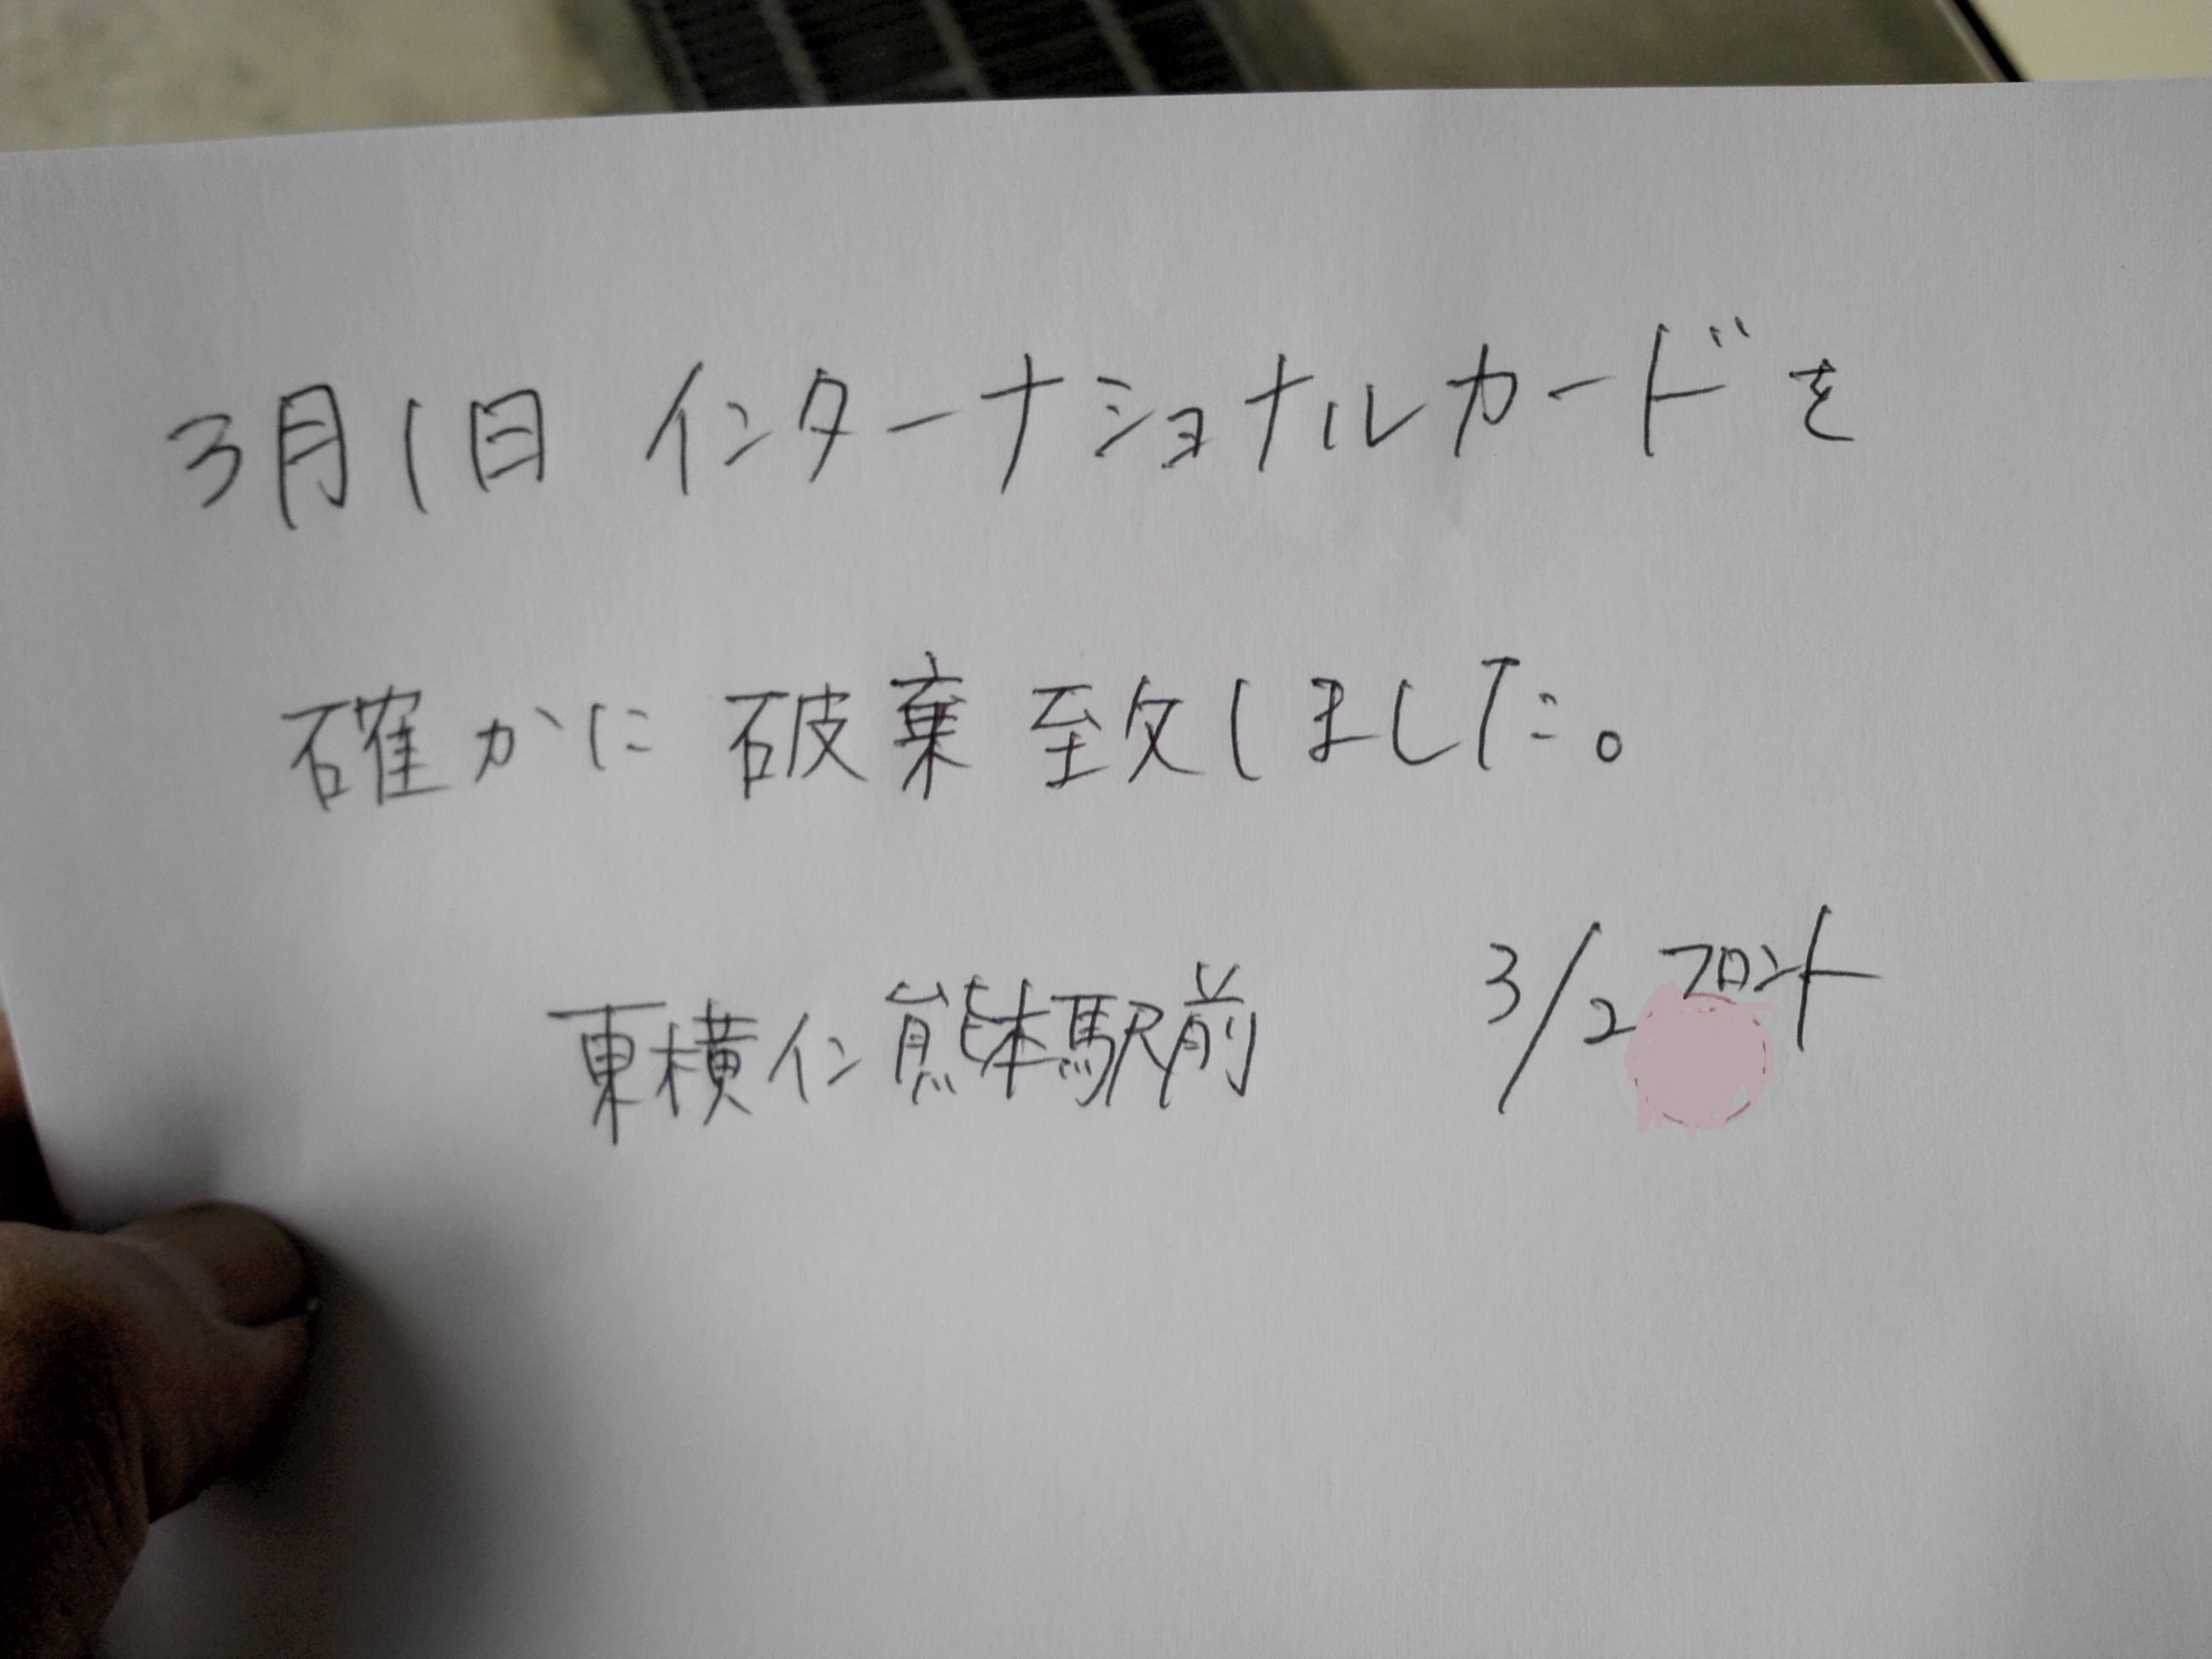 3月1日 インターナショナルカードを
確かに破棄致しました。
東横イン熊本駅前 3/2 フロント